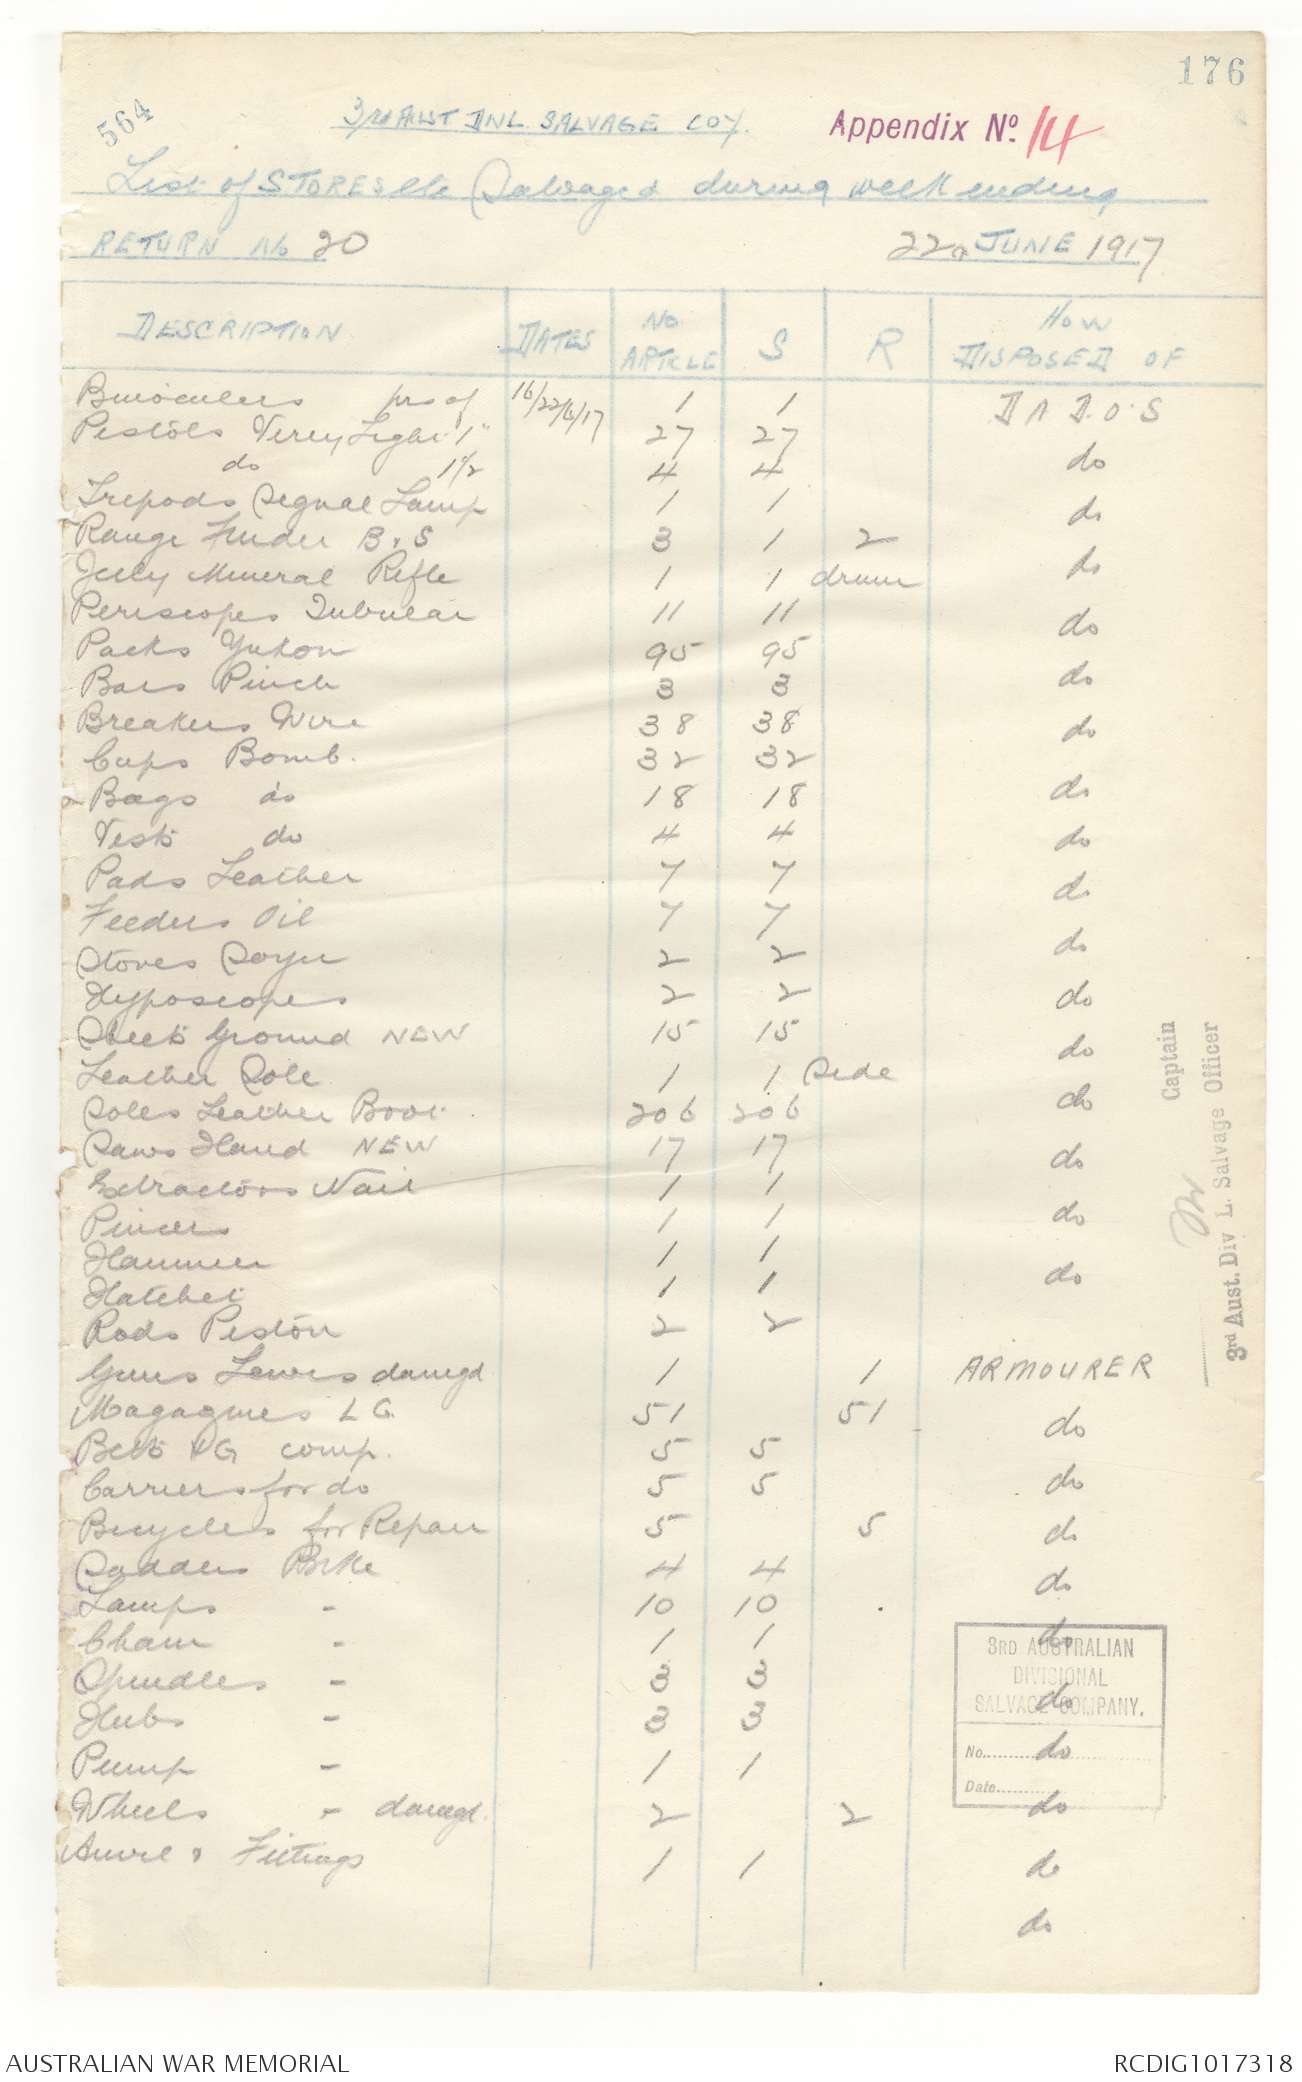 176
564
3rd AUST DNL. SALVAGE COY.
Appendix No. 14
List of STORES etc Salvaged during week ending
RETURN No 20 22nd JUNE 1917
DESCRIPTION DATES No ARTICLE S R HOW DISPOSED OF
Binoculers prs of 16/22/6/17 1 1 D A D.O.S
Pistols Verey Light 1" 27 27 do
do 1½ 4 4
Tripods Signal Lamp 1 1 do
Range Finder B & S 3 1 2
Jelly Mineral Rifle 1 1 drum do
Periscopes Tubular 11 11 do
Packs Yukon 95 95
Bars Pinch 3 3 do
Breakers Wire 38 38 do
Cups Bomb. 32 32
Bags do 18 18 do
Vests do 4 4 do
Pads Leather 7 7 do
Feeders Oil 7 7
Stoves Soyer 2 2 do
Hyposcopes 2 2 do
Sheets Ground NEW 15 15 do
Leather Sole 1 1 Side
Soles Leather Boot. 206 206 do
Saws Hand NEW 17 17 do
Extractors Nail 1 1
Pincers 1 1 do
Hammer 1 1
Hatchet 1 1 do
Rods Piston 2 2
Guns Lewis damgd 1 1 ARMOURER
Magagines L G. 51 51 do
Belts LG comp. 5 5
Carriers for do 5 5 do
Bicycles for Repair 5 5 do
Saddles Bike 4 4 do
Lamps - 10 10
Chain - 1 1 do
Spindles - 3 3 do
Hubs - 3 3
Pump - 1 1 do
Wheels - damgd. 2 2 do
Anvil & Fittings 1 1 do
do
Captain
3rd Aust. Div L. Salvage Officer
3RD AUSTRALIAN
DIVISIONAL
SALVAGE COMPANY.
No..........
Date..........
AUSTRALIAN WAR MEMORIAL RCDIG1017318